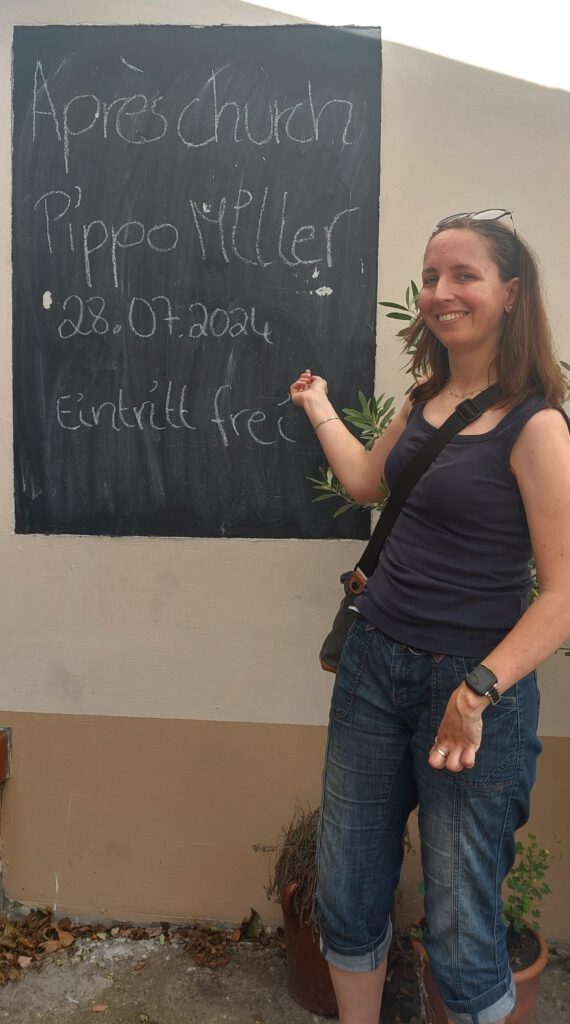 Après church
Pippo Miller
28.07.2024
Eintritt frei